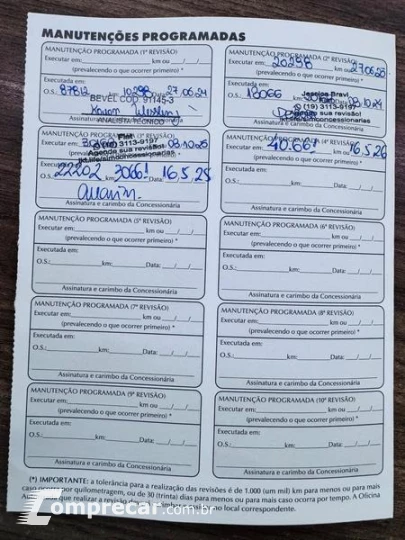 MANUTENÇÕES PROGRAMADAS
MANUTENÇÃO PROGRAMADA (1ª REVISÃO)
Executar em: km ou / /
(prevalecendo o que ocorrer primeiro) *
Executada em:
O.S.: 87812 km: 10298 Data: 27.06.24
BEVEL COD. 91145-3
ANALISTA TÉCNICO
Assinatura e carimbo da Concessionária
MANUTENÇÃO PROGRAMADA (2ª REVISÃO)
Executar em: 20298 km ou 27.06.25
(prevalecendo o que ocorrer primeiro) *
Executada em:
Jessica Bravi
O.S.: 18066 08.10.24
(19) 3113-9197
Agende sua revisão!
/simconcessionarias
Assinatura e carimbo da Concessionária
MANUTENÇÃO PROGRAMADA (3ª REVISÃO)
Executar em: km ou 08.10.25
Fiat
(19) 3113-9197
Agende sua revisão!
/simconcessionarias
22202 30661 16.5.25
Assinatura e carimbo da Concessionária
MANUTENÇÃO PROGRAMADA (4ª REVISÃO)
Executar em: 40.661 km ou 16.5.26
(prevalecendo o que ocorrer primeiro) *
Executada em:
O.S.: km: Data: / /
Assinatura e carimbo da Concessionária
MANUTENÇÃO PROGRAMADA (5ª REVISÃO)
Executar em: km ou / /
(prevalecendo o que ocorrer primeiro) *
Executada em:
O.S.: km: Data: / /
Assinatura e carimbo da Concessionária
MANUTENÇÃO PROGRAMADA (6ª REVISÃO)
Executar em: km ou / /
(prevalecendo o que ocorrer primeiro) *
Executada em:
O.S.: km: Data: / /
Assinatura e carimbo da Concessionária
MANUTENÇÃO PROGRAMADA (7ª REVISÃO)
Executar em: km ou / /
(prevalecendo o que ocorrer primeiro) *
Executada em:
O.S.: km: Data: / /
Assinatura e carimbo da Concessionária
MANUTENÇÃO PROGRAMADA (8ª REVISÃO)
Executar em: km ou / /
(prevalecendo o que ocorrer primeiro) *
Executada em:
O.S.: km: Data: / /
Assinatura e carimbo da Concessionária
MANUTENÇÃO PROGRAMADA (9ª REVISÃO)
Executar em: km ou / /
(prevalecendo o que ocorrer primeiro) *
Executada em:
O.S.: km: Data: / /
Assinatura e carimbo da Concessionária
MANUTENÇÃO PROGRAMADA (10ª REVISÃO)
Executar em: km ou / /
(prevalecendo o que ocorrer primeiro) *
Executada em:
O.S.: km: Data: / /
Assinatura e carimbo da Concessionária
(*) IMPORTANTE: a tolerância para a realização das revisões é de 1.000 (um mil) km para menos ou para mais
caso ocorrer por quilometragem, ou de 30 (trinta) dias para menos ou para mais caso ocorra por tempo. A Oficina
que realizar a revisão no local correspondente.
Comprecar.com.br